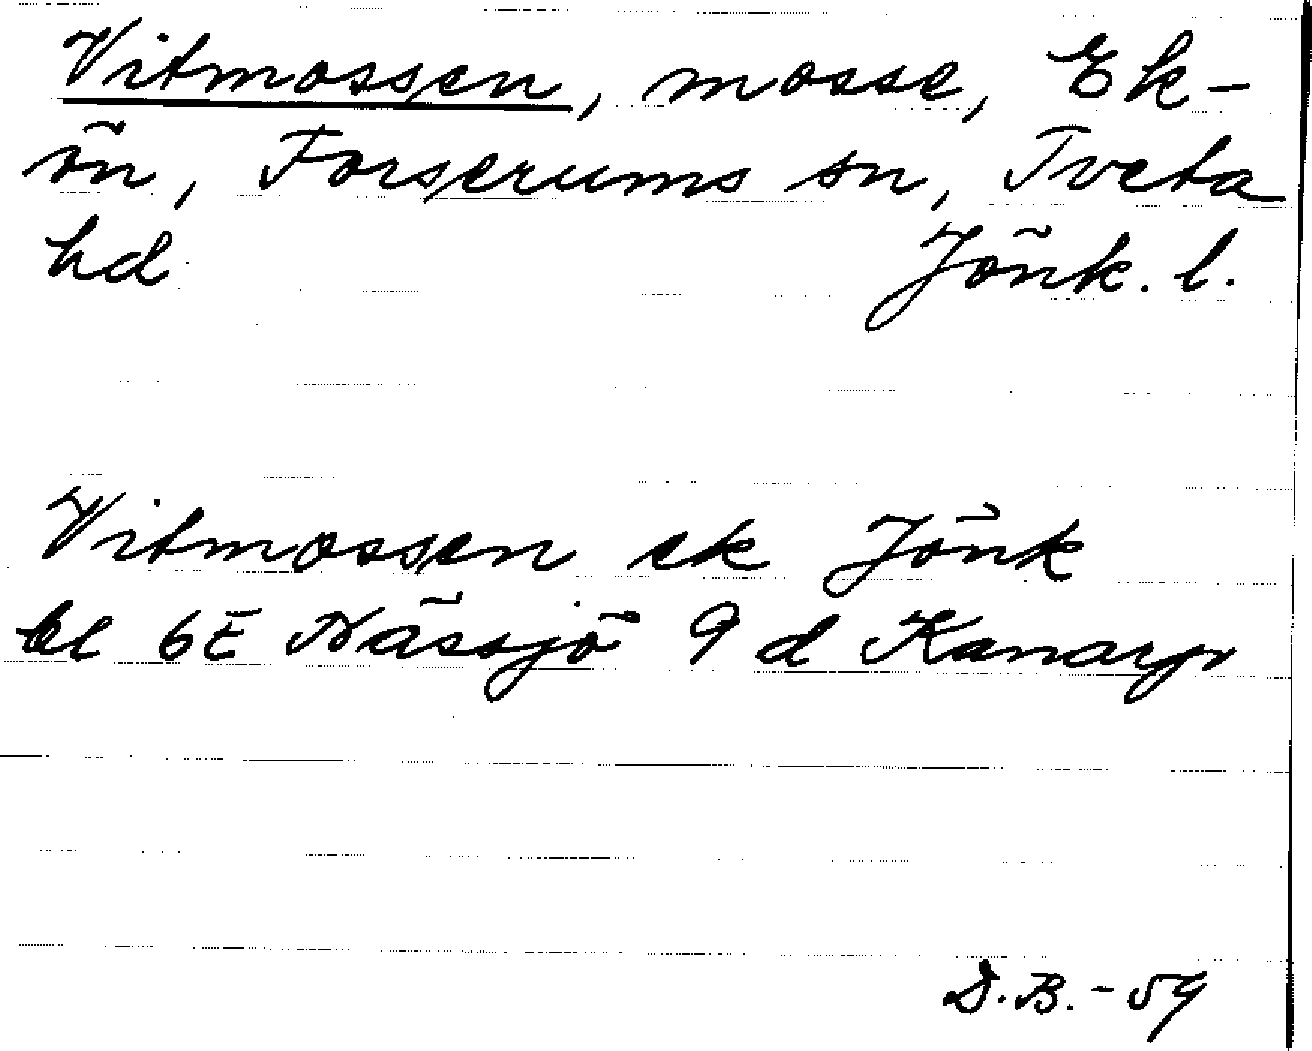 Vitmossen, mosse, Ek-
ön, Forserums sn, Tveta
hd Jönk. l.
Vitmossen ek Jönk
bl 6E Nässjö 9 d Kanarp
D.B. - 59